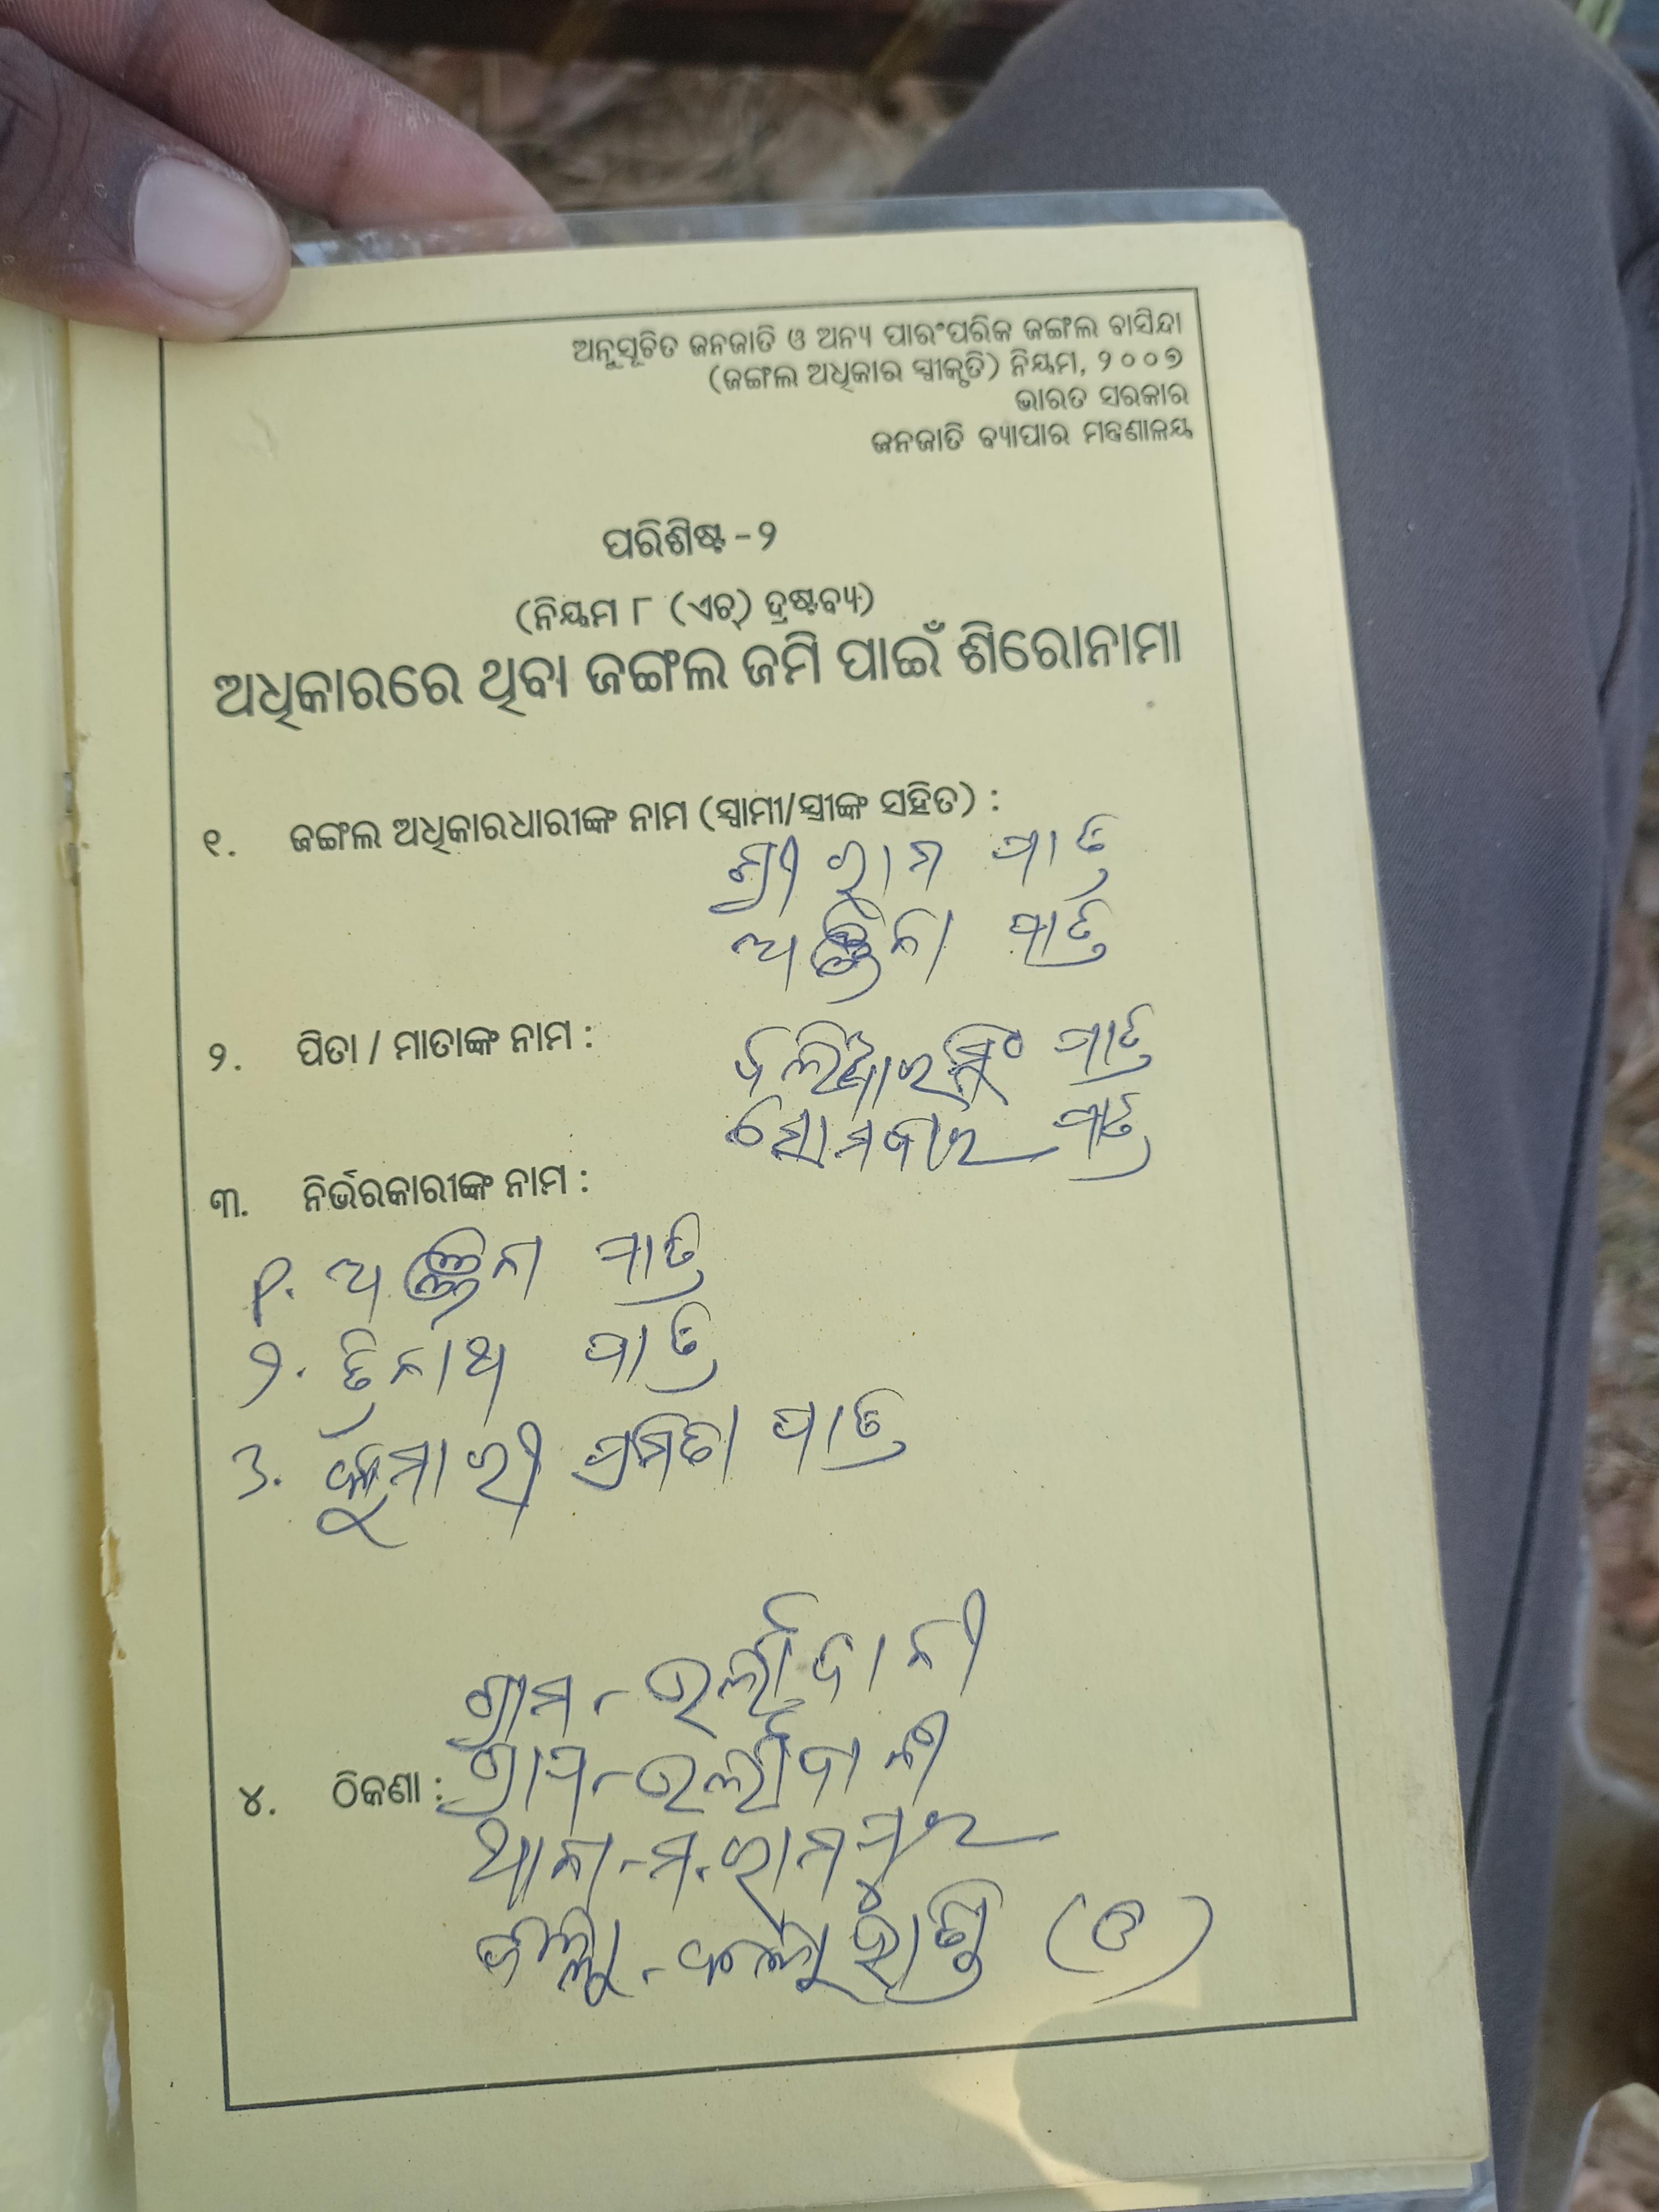 ଅନୁସୂଚିତ ଜନଜାତି ଓ ଅନ୍ୟ ପାରଂପରିକ ଜଙ୍ଗଲ ବାସିନ୍ଦା
(ଜଙ୍ଗଲ ଅଧିକାର ସ୍ୱୀକୃତି) ନିୟମ, ୨୦୦୭
ଭାରତ ସରକାର
ଜନଜାତି ବ୍ୟାପାର ମନ୍ତ୍ରଣାଳୟ
ପରିଶିଷ୍ଟ - ୨
(ନିୟମ ୮ (ଏଚ୍) ଦ୍ରଷ୍ଟବ୍ୟ)
ଅଧିକାରରେ ଥିବା ଜଙ୍ଗଲ ଜମି ପାଇଁ ଶିରୋନାମା
୧. ଜଙ୍ଗଲ ଅଧିକାରଧାରୀଙ୍କ ନାମ (ସ୍ୱାମୀ/ସ୍ତ୍ରୀଙ୍କ ସହିତ) :
ଶ୍ରୀ ରାମ ପାତ୍ର
ପାତ୍ର
୨. ପିତା / ମାତାଙ୍କ ନାମ :
ପାତ୍ର
ସୋମବାର ପାତ୍ର
୩. ନିର୍ଭରକାରୀଙ୍କ ନାମ :
୧. ପାତ୍ର
୨. ତ୍ରିନାଥ ପାତ୍ର
୩. କୁମାରୀ ପ୍ରମିତା ପାତ୍ର
ଗ୍ରାମ -
୪. ଠିକଣା : ଗ୍ରାପ -
ଥାନା - ମ. ରାମପୁର
ଜିଲ୍ଲା - କଳାହାଣ୍ଡି (ଓ)